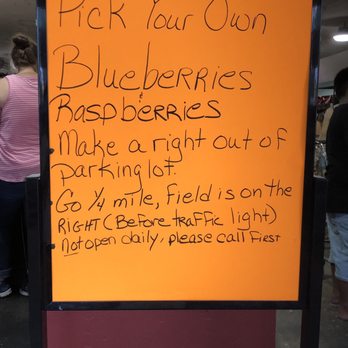 Pick Your Own
Blueberries
&
Raspberries
• Make a right out of
parking lot.
• Go 1/4 mile, field is on the
RIGHT (Before traffic light)
• Not open daily, please call First